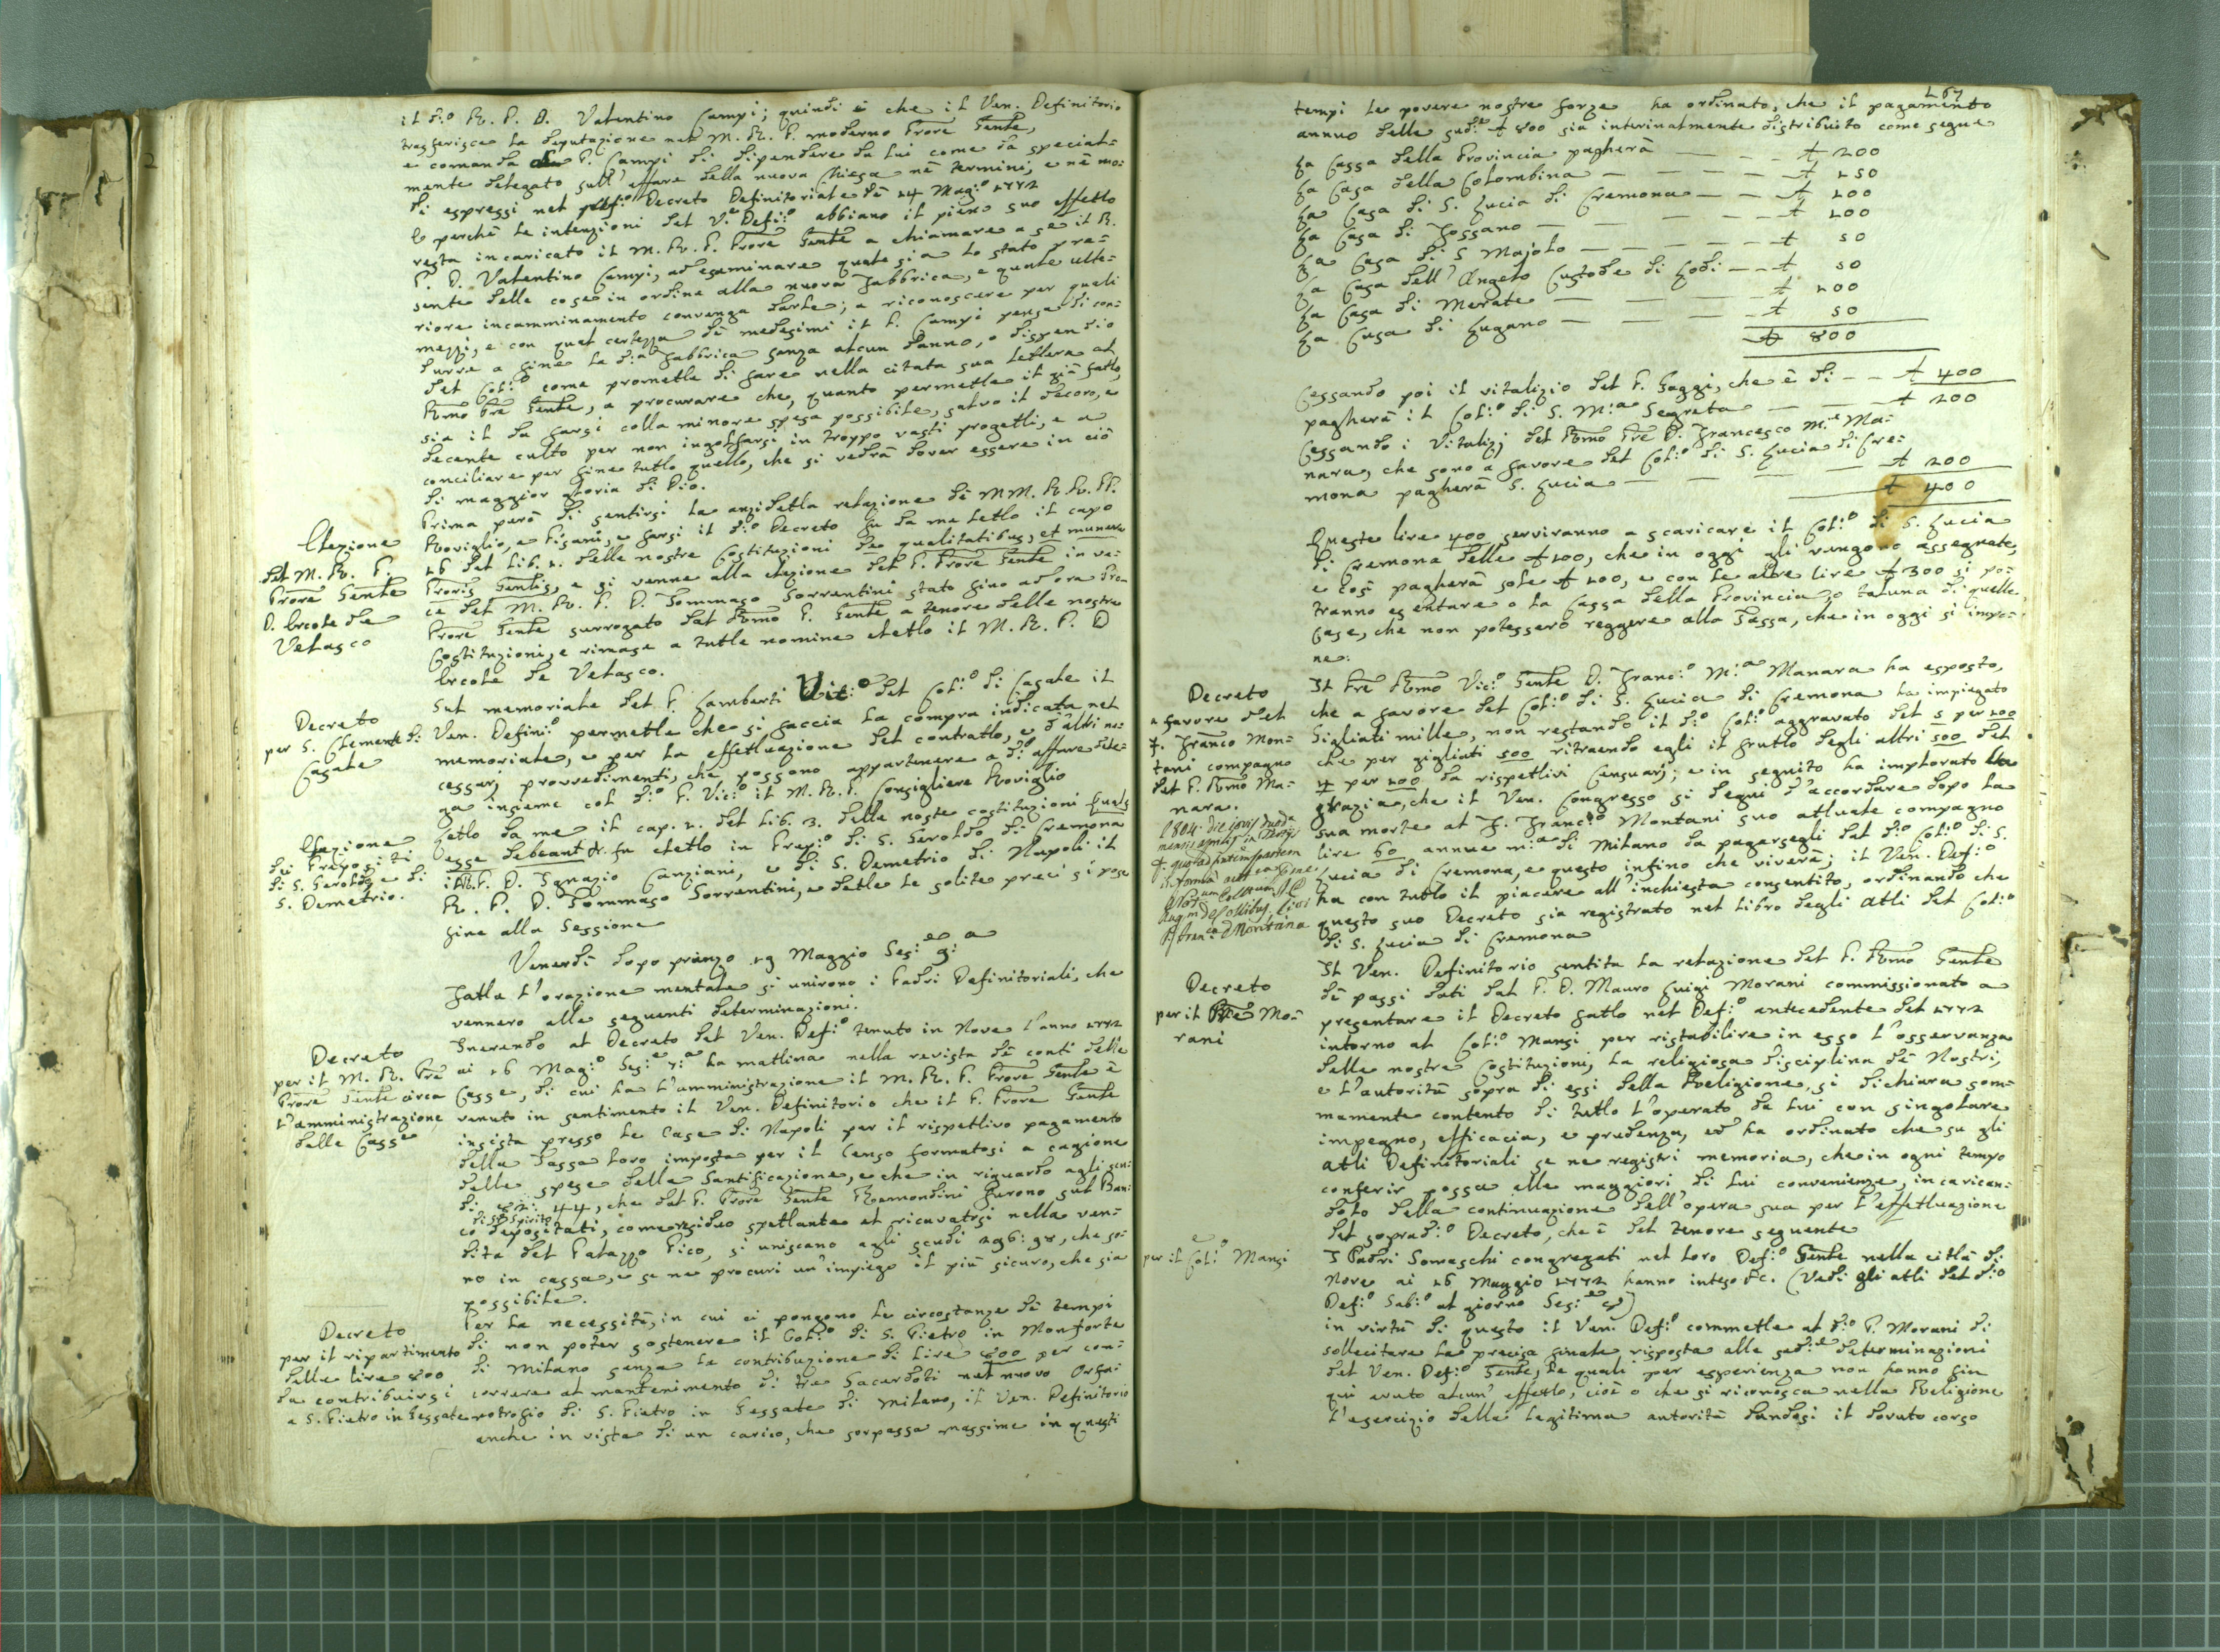 il d:o R. P. D. Valentino Campi; quindi è che il Ven. Definitorio
trasferisce la deputazione nel M. R. P. moderno Prore Gente,
e comanda al P. Campi di dipendere da lui come da special=
mente delegato sull'affare della nuova Chiesa nè termini, e nè mo=
di espressi nel Decreto Definitoriale dè 14 Mag:o 1772
E perchè le intenzioni del V.e Def:o abbiano il pieno suo effetto
resta incaricato il M. R. P. Prore Gente a chiamare a se il R.
P. D. Valentino Campi, ad esaminare quale sia lo stato pre=
sente delle cose in ordine alla nuova Fabbrica, e quale ulte=
riore incamminamento convenga darle; a riconoscere per quali
mezzi, e con qual certezza dè medesimi il P. Campi pensa di con=
durre a fine la d:a Fabbrica senza alcun danno, o dispendio
del Col:o come promette di fare nella citata sua lettera al
Rmo Pre Gente, a procurare che, quanto permette il già fatto,
sia il da farsi colla minore spesa possibile, salvo il decoro, e
decente culto per non ingolfarsi in troppo vasti progetti, e a
conciliare per fine tutto quello, che si vedrà dover essere in ciò
di maggior gloria di Dio.
Prima però di sentirsi la anzidetta relazione dè MM. RR. PP.
Elezione
del M. R. P.
Prore Gente
D. Ercole de
Velasco
Roviglio, e Pisani, e farsi il d:o Decreto fu da me letto il capo
16 del Lib. 1. delle nostre Costituzioni De qualitatibus, et munere
Proris Gentis, e si venne alla elezione del P. Prore Gente in ve=
ce del M. R. P. D. Tommaso Sorrentini stato fino ad ora Pro=
Prore Gente surrogato dal Rmo P. Gente a tenore delle nostre
Costituzioni, e rimase a tutte nomine eletto il M. R. P. D
Ercole de Velasco.
Decreto
per S. Clemente di
Casale
Sul memoriale del P. Lamberti Vic:o del Col:o di Casale il
Ven. Defini:o permette che si faccia la compra indicata nel
memoriale, e per la effettuazione del contratto, e d'altri ne=
cessarj provvedimenti, che possono appartenere a d:o affare dele=
ga insieme col d:o P. Vic:o il M. R. P. Consigliere Roviglio
Elezione
dei Prepositi
di S. Geroldo, e di
S. Demetrio.
Letto da me il cap. 2. del Lib. 3. delle noste costituzioni Quales
esse debeant &c. fu eletto in Prep:o di S. Geroldo di Cremona
il R. P. D. Ignazio Canziani, e di S. Demetrio di Napoli il
R. P. D. Tommaso Sorrentini, e dette le solite preci si pose
fine alla Sessione
Venerdì dopo pranzo 19 Maggio Ses:e 9:a
Fatta l'orazione mentale si unirono i Padri Definitoriali, che
vennero alle seguenti determinazioni.
Decreto
per il M. R. Pre
Prore Gente circa
l'amministrazione
delle Casse
Inerendo al Decreto del Ven. Def:o tenuto in Nove l'anno 1772
ai 16 Mag:o Ses:e 7:a la mattina nella revista dè conti delle
Casse, di cui ha l'amministrazione il M. R. P. Prore Gente è
venuto in sentimento il Ven. Definitorio che il P. Prore Gente
insista presso le Case di Napoli per il rispettivo pagamento
della Tassa loro imposta per il Censo formatosi a cagione
delle spese della Santificazione, e che in riguardo agli scu=
di 44, che dal P. Prore Gente Remondini furono sul Ban=
di S. Spirito
co depositati, come residuo spettante al ricavatosi nella ven=
dita del Palazzo Pico, si uniscano agli scudi 296:98, che so=
no in cassa, e se ne procuri un'impiego il più sicuro, che sia
possibile.
Decreto
per il ripartimento
delle lire 800
da contribuirsi
a S. Pietro in Gessate
Per la necessità, in cui ci pongono le circostanze dè tempi
di non poter sostenere il Col:o di S. Pietro in Monforte
di Milano senza la contribuzione di Lire 800 per con=
correre al mantenimento di tre Sacerdoti nel nuovo Orfa=
notrofio di S. Pietro in Gessate di Milano, il Ven. Definitorio
anche in vista di un carico, che sorpassa massime in questi
167
tempi le povere nostre forze ha ordinato, che il pagamento
annuo delle sud:e £ 800 sia interinalmente distribuito come segue
La Cassa della Provincia pagherà — £ 200
La Casa della Colombina — £ 150
La Casa di S. Lucia di Cremona — £ 100
La Casa di Fossano — £ 100
La Casa di S Majolo — £ 50
La Casa dell'Angelo Custode di Lodi — £ 50
La Casa di Merate — £ 100
La Casa di Lugano — £ 50
£ 800
Cessando poi il vitalizio del P. Gaggi, che è di — £ 400
pagherà il Col:o di S. M:a Segreta — £ 200
Cessando i Vitalizj del Rmo Pre D. Francesco M:a Ma=
nara, che sono a favore del Col:o di S. Lucia di Cre=
mona pagherà S. Lucia — £ 200
£ 400
Queste lire 400 serviranno a scaricare il Col:o di S. Lucia
di Cremona delle £ 100, che in oggi gli vengono assegnate,
e così pagherà sole £ 200, e con le altre lire £ 300 si po=
tranno esentare o la Cassa della Provincia o taluna di quelle
Case, che non potessero reggere alla Tassa, che in oggi si impo=
ne.
Decreto
a favore del
F. Franco Mon=
tani compagno
del P. Rmo Ma=
nara.
Il Pre Rmo Vic:o Gente D. Franc:o M:a Manara ha esposto,
che a favore del Col:o di S. Lucia di Cremona ha impiegato
Gigliati mille, non restando il d:o Col:o aggravato del 5 per 100
che per gigliati 500 ritraendo egli il frutto degli altri 500 del
4 per 100 da rispettivi Censuarj; e in seguito ha implorato la
grazia, che il Ven. Congresso si degni d'accordare dopo la
sua morte al F. Franc:o Montani suo attuale compagno
lire 60 annue m:a di Milano da pagarsegli dal d:o Col:o di S.
Lucia di Cremona, e questo infino che viverà; il Ven. Def:o
ha con tutto il piacere all'inchiesta consentito, ordinando che
questo suo Decreto sia registrato nel Libro degli Atti del Col:o
di S. Lucia di Cremona
Decreto
per il Pre Mo=
rani
Il Ven. Definitorio sentita la relazione del P. Rmo Gente
dè passi dati dal P. D. Mauro Luigi Morani commissionato a
presentare il Decreto fatto nel Def:o antecedente del 1772
intorno al Col:o Mansi per ristabilire in esso l'osservanza
delle nostre Costituzioni, la religiosa disciplina dè Nostri,
e l'autorità sopra di essi della Religione, si dichiara som=
mamente contento di tutto l'operato da lui con singolare
impegno, efficacia, e prudenza, ed ha ordinato che su gli
atti Definitoriali se ne registri memoria, che in ogni tempo
conferir possa alle maggiori di lui convenienze, incarican=
dolo della continuazione dell'opera sua per l'effettuazione
del soprad:o Decreto, che è del tenore seguente
e
per il Col:o Mansi
I Padri Somaschi congregati nel loro Def:o Gente nella città di
Nove ai 16 Maggio 1772 hanno inteso &c. (Vedi gli atti del d:o
Def:o Sab:o al giorno Ses:e 9)
in virtù di questo il Ven. Def:o commette al d:o P. Morani di
sollecitare la precisa finale risposta alle sud:e determinazioni
del Ven. Def:o Gente, le quali per esperienza non hanno fin
qui avuto alcun' effetto, cioè o che si riconosca nella Religione
l'esercizio della legitima autorità dandosi il dovuto corso